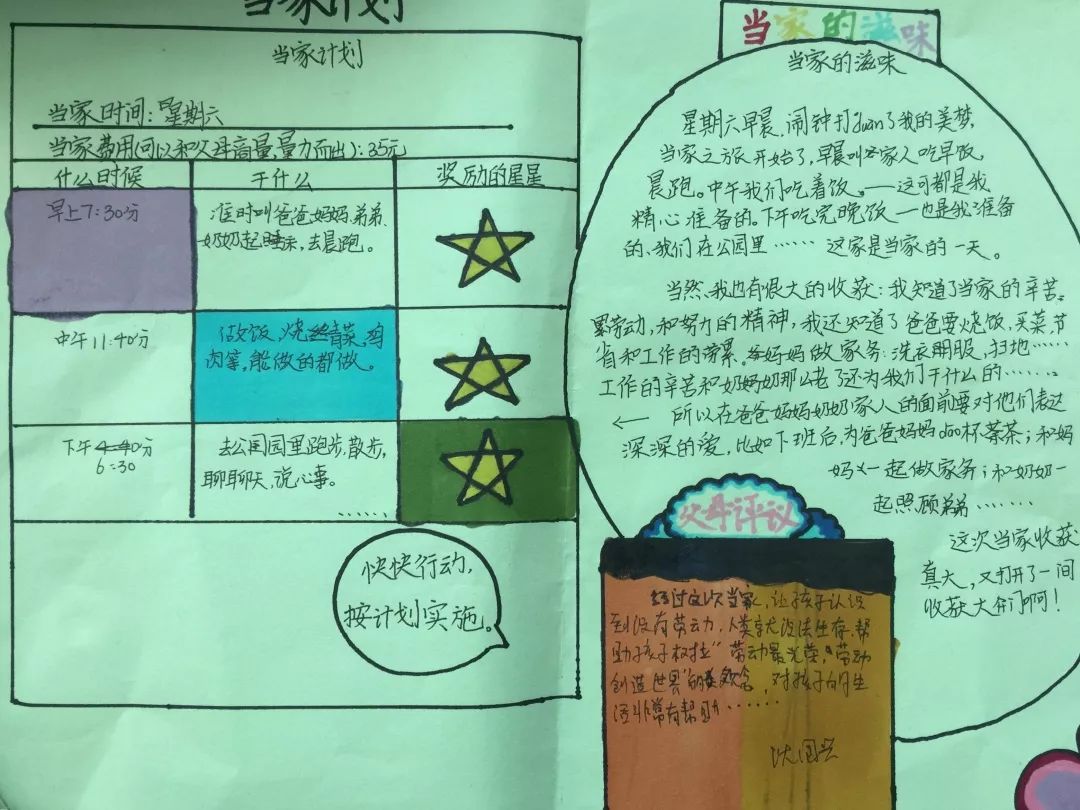 当家计划
当家计划
当家时间：星期六
当家费用(可以和父母商量,量力而出)：35元
什么时候 干什么 奖励的星星
早上7:30分
准时叫爸爸妈妈、弟弟、
奶奶起床，去晨跑。
中午11:40分
做饭，烧青菜，鸡
肉等，能做的都做。
下午4:40分
6:30
去公园里跑步，散步，
聊聊天，说心事。
……
快快行动，
按计划实施。
当家的滋味
当家的滋味
星期六早晨，闹钟打duàn了我的美梦，
当家之旅开始了，早晨叫家人吃早饭，
晨跑。中午我们吃着饭。——这可都是我
精心准备的。下午吃完晚饭——也是我准备
的、我们在公园里……这家是当家的一天。
当然，我也有很大的收获：我知道了当家的辛苦。
劳动，和努力的精神，我还知道了爸爸要烧饭，买菜，节
省和工作的劳累。妈妈做家务：洗衣服，扫地……
工作的辛苦和奶奶那么老了还为我们干什么的……
← 所以在爸爸妈妈奶奶家人的面前要对他们表达
深深的爱，比如下班后，为爸爸妈妈dào杯茶；和妈
妈一起做家务；和奶奶一
起照顾弟弟……
这次当家收获
真大，又打开了一间
收获大门啊！
父母评议
经过这次当家，让孩子认识
到没有劳动，人类就没法生存，帮
助孩子树立“劳动最光荣，劳动
创造世界”的观念，对孩子的生
活非常有帮助……